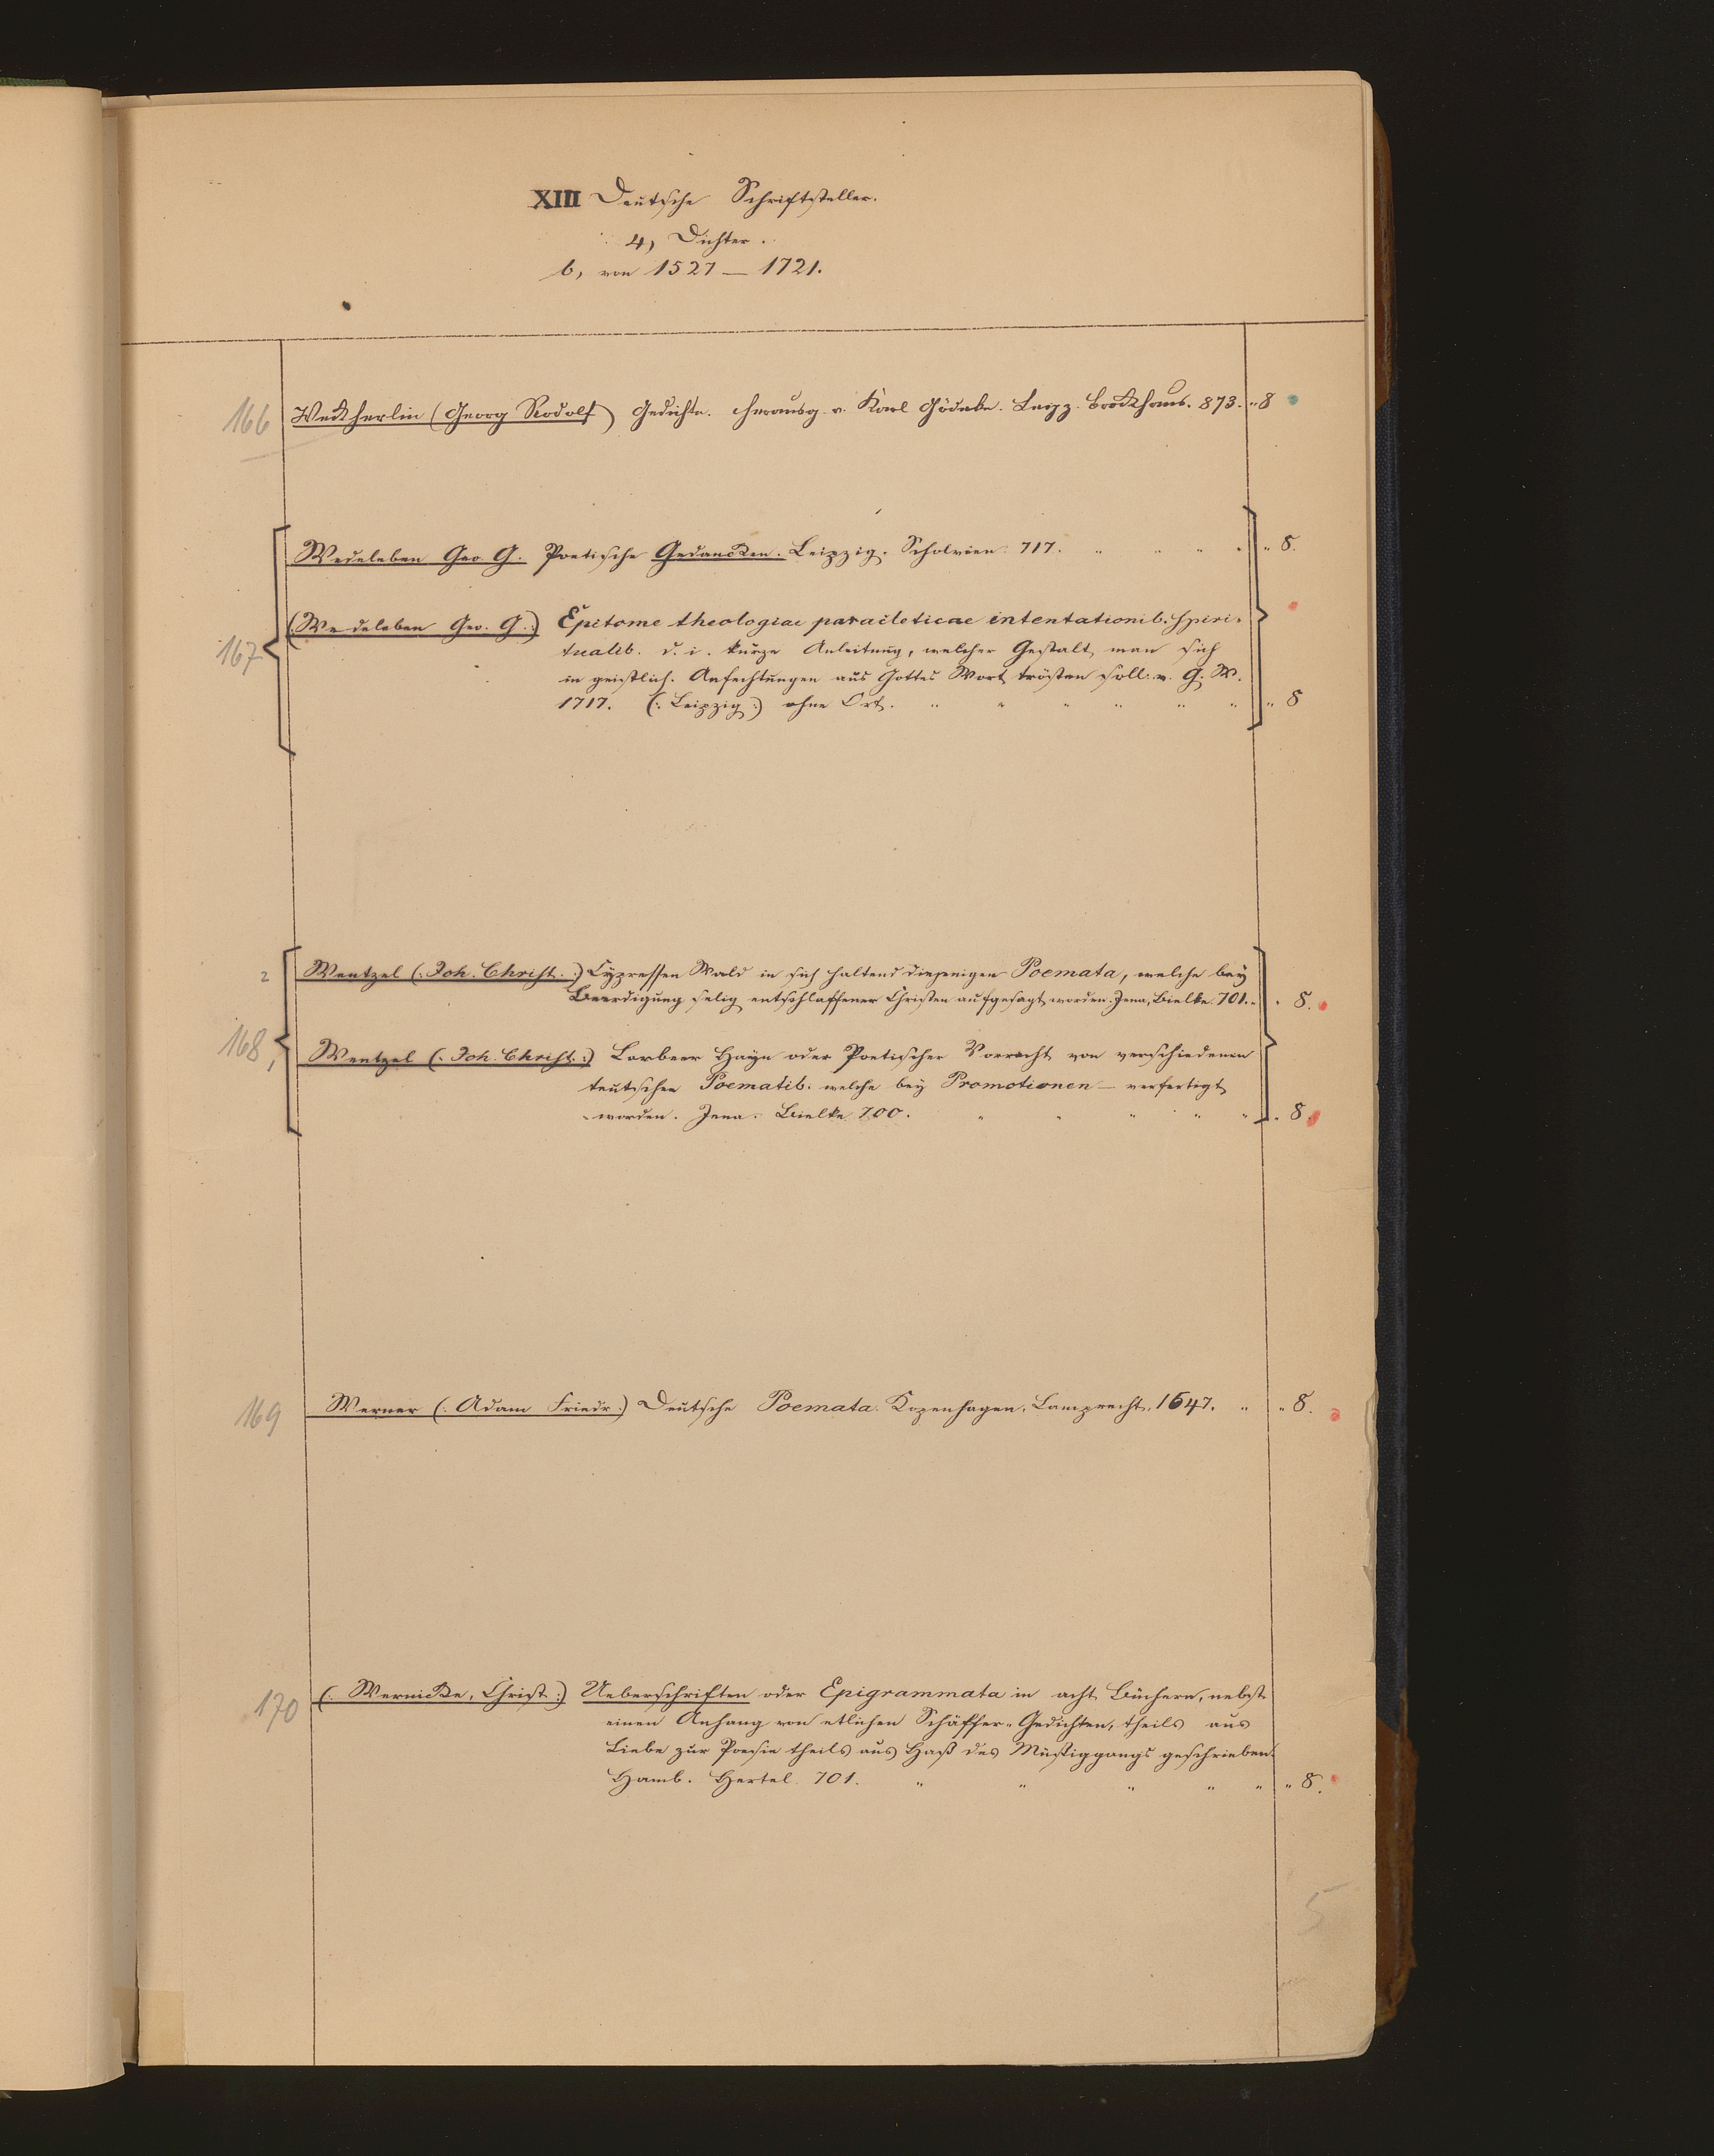 XIII Deutsche Schriftsteller.
4, Dichter.
b, von 1527 — 1721.
166 Weckherlin (Georg Rodolf) Gedichte. Herausg. v. Karl Gödeke. Leipz. Brockhaus. 873. „ 8
Wedeleben Geo. G. Poetische Gedancken. Leipzig. Scholvien. 717. „ „ „ „ „ 8.
167 (Wedeleben Geo. G.:) Epitome theologiae paracleticae in tentationib. spiri-
tualib. d. i. kurze Anleitung, welcher Gestalt man sich
in geistlich. Anfechtungen aus Gottes Wort trösten soll. v. G. W.
1717. (: Leipzig :) ohne Ort. „ „ „ „ „ „ „ 8
2 Wentzel (: Joh. Christ. :) Cypressen Wald in sich haltend diejenigen Poemata, welche bey
Beerdigung selig entschlaffener Christen aufgesagt worden. Jena, Bielke. 701. „ „ 8.
168, 1 Wentzel (: Joh. Christ. :) Lorbeer Hayn oder Poetischer Vorracht von verschiedenen
teutschen Poematib. welche bey Promotionen — verfertigt
worden. Jena. Bielke. 700. „ „ „ „ „ „ 8.
169 Werner (: Adam Friedr :) Deutsche Poemata. Kopenhagen. Lamprecht. 1647. „ „ 8.
170 (: Wernicke, Christ :) Ueberschriften oder Epigrammata in acht Büchern, nebst
einen Anhang von etlichen Schäffer-Gedichten, theils aus
Liebe zur Poesie theils aus Haß des Müssiggangs geschrieben.
Hamb. Hertel. 701. „ „ „ „ „ „ 8.
5